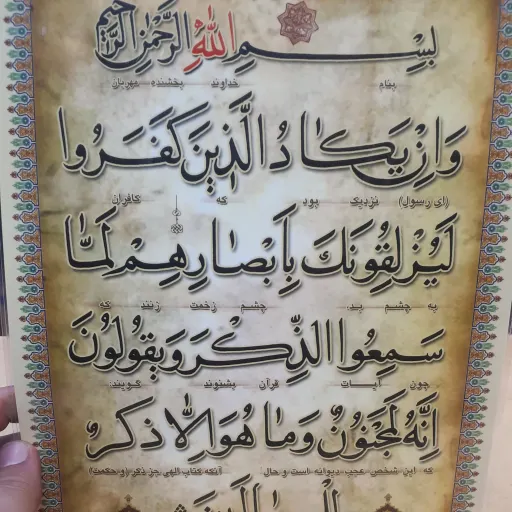 بِسْمِ اللهِ الرَّحْمٰنِ الرَّحیمِ
بنام خداوند بخشنده مهربان
وَاِنْ یَکٰادُ الَّذِینَ کَفَرُوا
(ای رسول) نزدیک بود که کافران
لَیُزْلِقُونَكَ بِاَبْصٰارِهِمْ لَمّٰا
به چشم بد چشم زخمت زنند که
سَمِعُوا الذِّکْرَ وَیَقُولُونَ
چون آیات قرآن بشنوند گویند
اِنَّهُ لَمَجْنُونٌ وَمٰا هُوَ اِلّٰا ذِکْرٌ
که این شخص عجب دیوانه است و حال آنکه کتاب الهی جز ذکر (و حکمت)